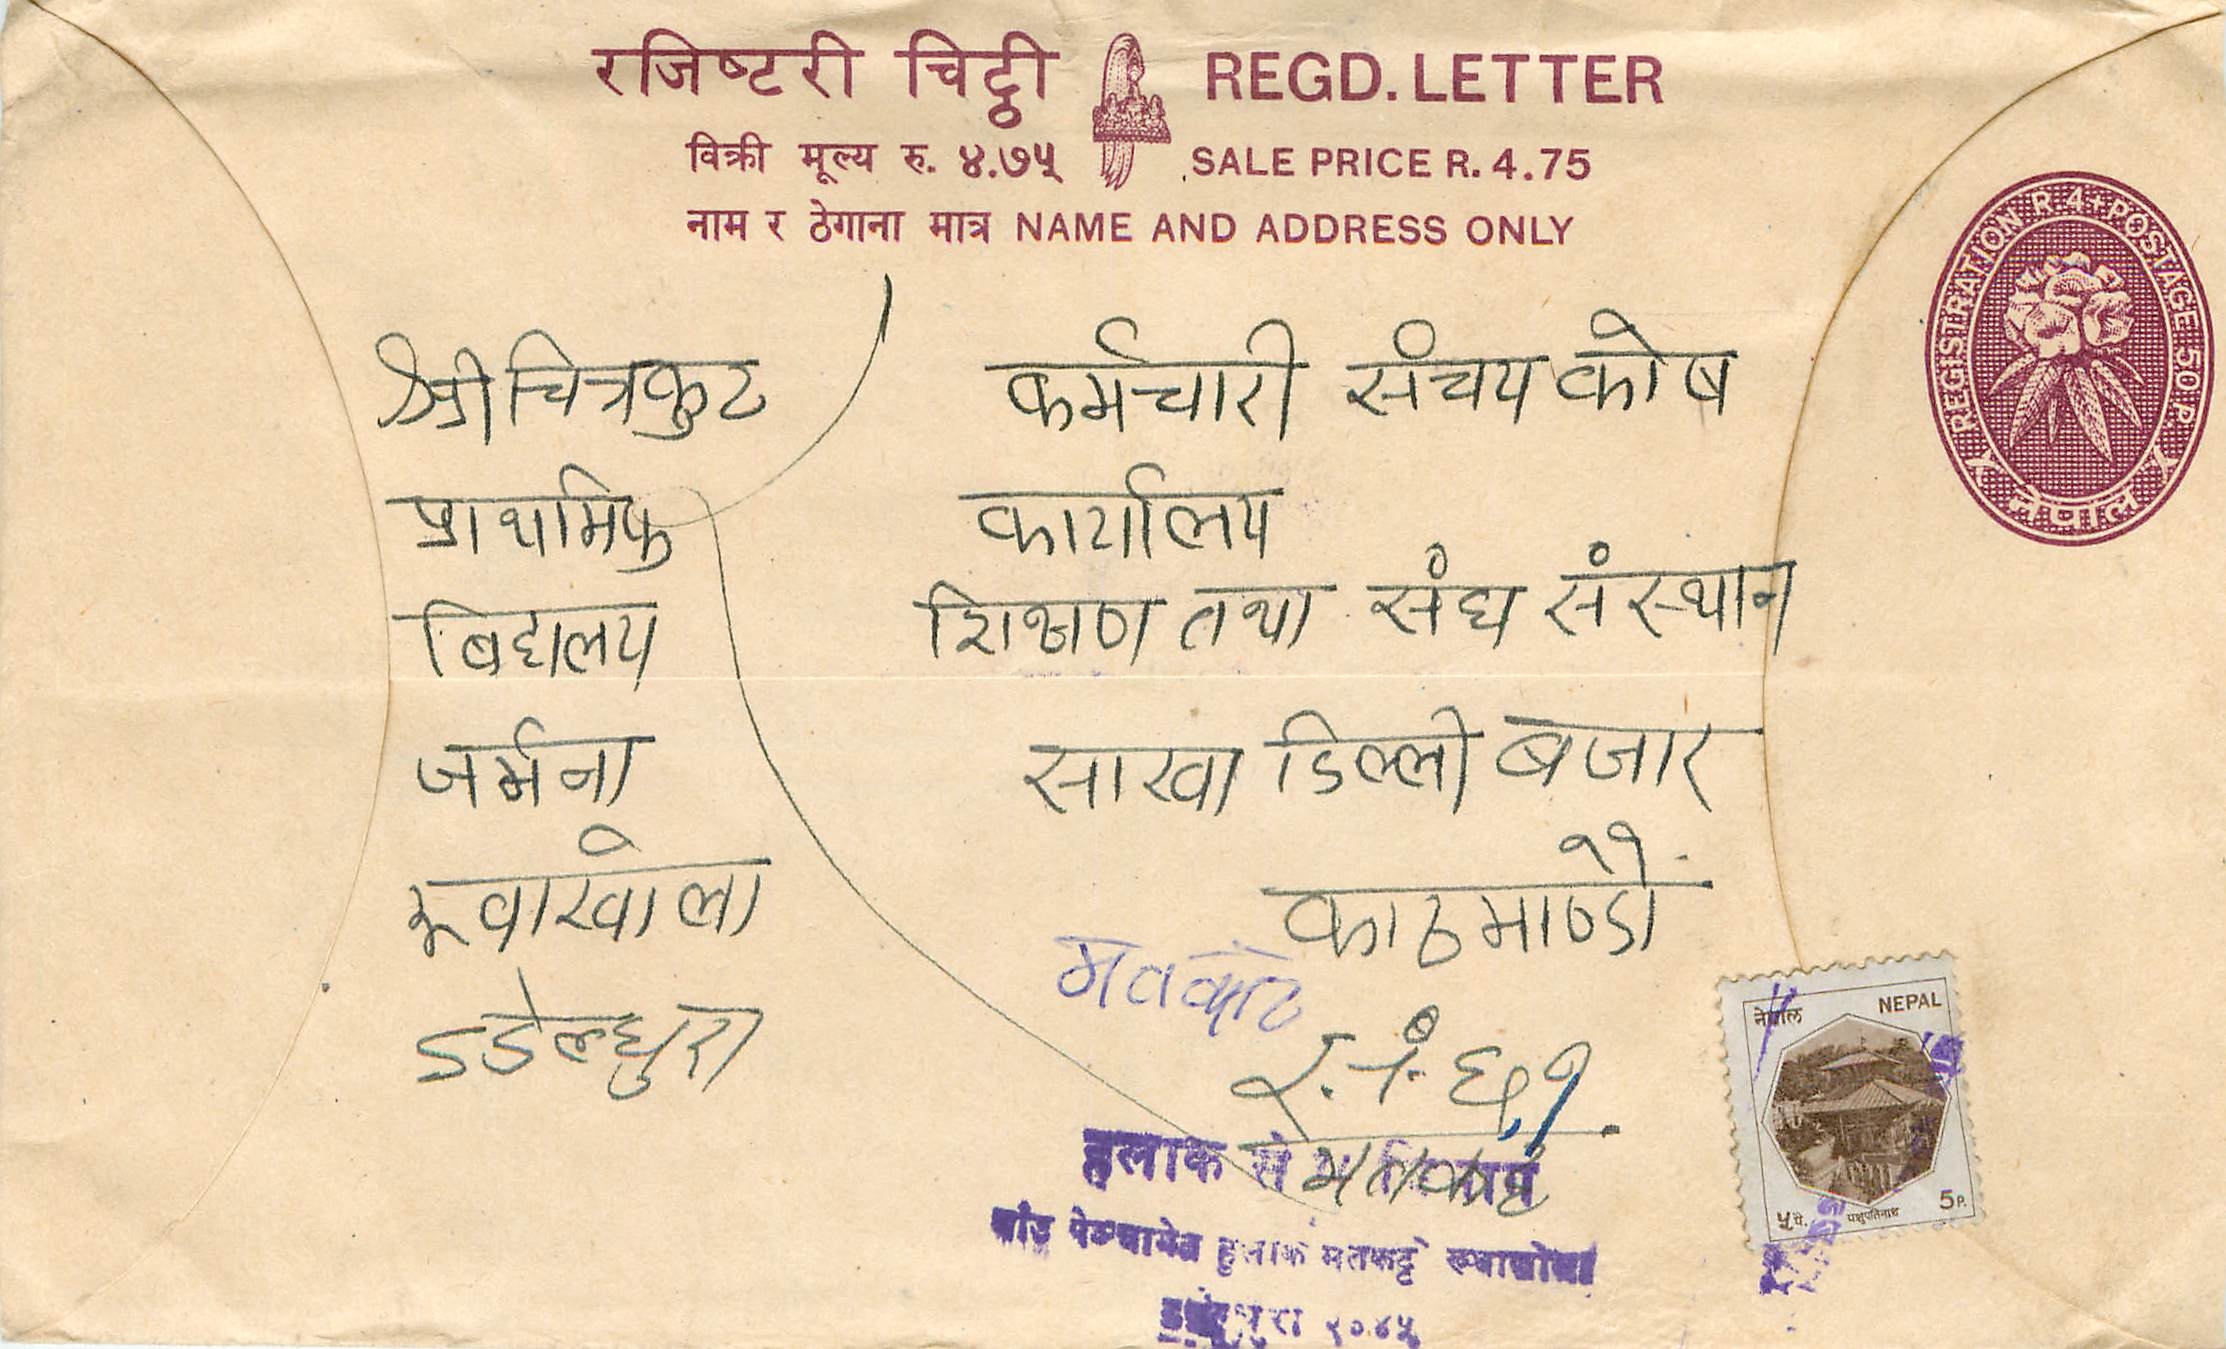 रजिष्टरी चिट्ठी REGD. LETTER
विक्री मूल्य रु. ४.७५ SALE PRICE R. 4.75
नाम र ठेगाना मात्र NAME AND ADDRESS ONLY
REGISTRATION R 4 + POSTAGE 50 P.
नेपाल
श्री चित्रकुट
प्राथमिक
बिद्यालय
जर्मना
रुवाखोला
डडेल्धुरा
कर्मचारी संचय कोष
कार्यालय
शिक्षण तथा संघ संस्थान
साखा डिल्ली बजार
११.
काठमाण्डौ
र. नं.
हुलाक
हुलाक मतकट्टे
२०४५
नेपाल NEPAL
५ पै. पशुपतिनाथ 5 P.